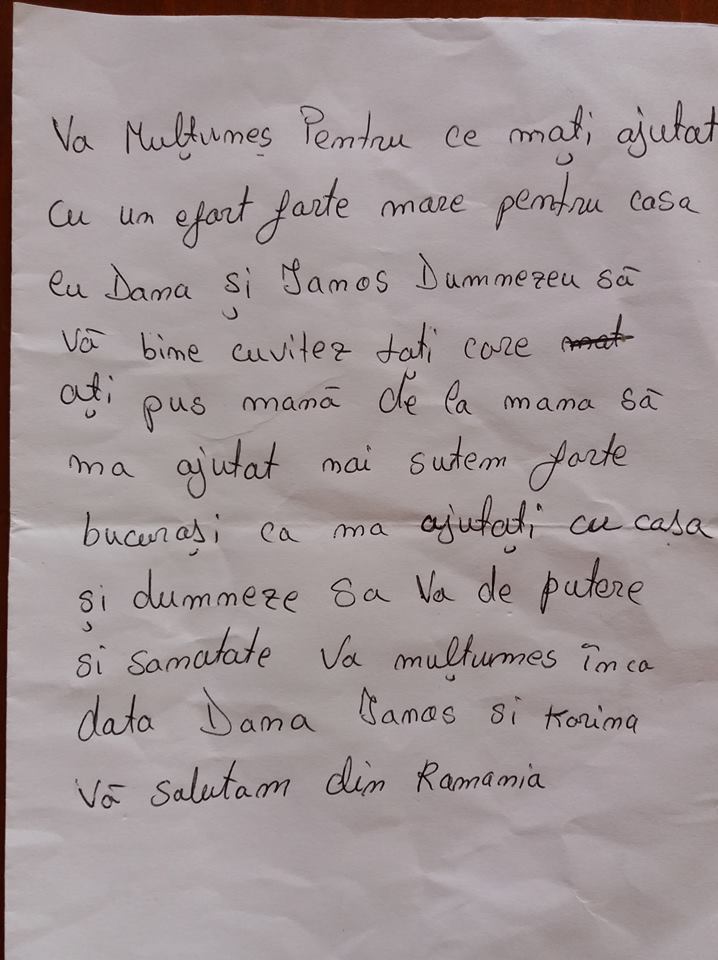 Va Mulțumeș Pentru ce mați ajutat
cu un efort farte mare pentru casa
eu Dana și Ianos Dumnezeu să
vă bine cuvitez tați care mat
ați pus mană de la mana să
ma ajutat noi sutem farte
bucurași ca ma ajutați cu casa
și dumneze sa Va de putere
si sanatate Va mulțumes înca
data Dana Ianos si Korina
Vă salutam din Ramania